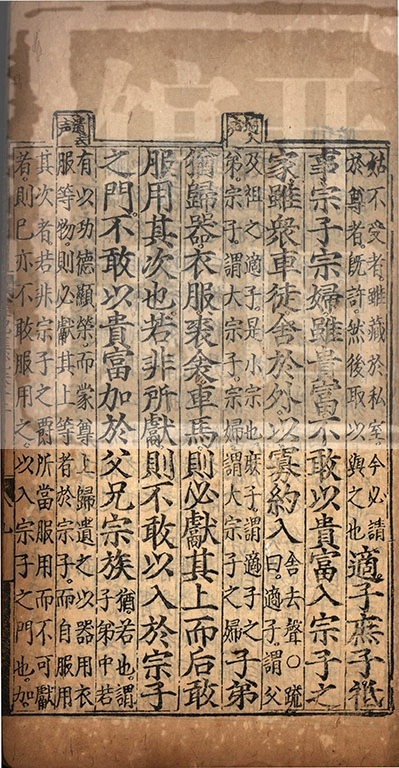 姑不受者雖藏於私室今必請
於尊者既許然後取以與之也
適子庶子祗
事宗子宗婦雖貴富不敢以貴富入宗子之
家雖衆車徒舍於外以寡約入
舍去聲○疏
曰適子謂父
及祖之適子是小宗也庶子謂適子之
弟宗子謂大宗子宗婦謂大宗子之婦
子弟
猶歸器衣服裘衾車馬則必獻其上而后敢
服用其次也若非所獻則不敢以入於宗子
之門不敢以貴富加於父兄宗族
猶若也謂
子弟中若
有以功德顯榮而蒙尊上歸遺之以器用衣
服等物則必獻其上等者於宗子而自服用
其次者若非宗子之爵所當服用而不可獻
者則已亦不敢服用之以入宗子之門也加